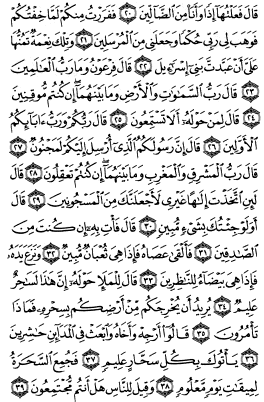 قَالَ فَعَلْتُهَا إِذًا وَأَنَا مِنَ الضَّالِّينَ ٢٠ فَفَرَرْتُ مِنكُمْ لَمَّا خِفْتُكُمْ
فَوَهَبَ لِي رَبِّي حُكْمًا وَجَعَلَنِي مِنَ الْمُرْسَلِينَ ٢١ وَتِلْكَ نِعْمَةٌ تَمُنُّهَا
عَلَيَّ أَنْ عَبَّدتَّ بَنِي إِسْرَاءِيلَ ٢٢ قَالَ فِرْعَوْنُ وَمَا رَبُّ الْعَالَمِينَ
٢٣ قَالَ رَبُّ السَّمَاوَاتِ وَالْأَرْضِ وَمَا بَيْنَهُمَا إِن كُنتُم مُّوقِنِينَ
٢٤ قَالَ لِمَنْ حَوْلَهُ أَلَا تَسْتَمِعُونَ ٢٥ قَالَ رَبُّكُمْ وَرَبُّ ءَابَائِكُمُ
الْأَوَّلِينَ ٢٦ قَالَ إِنَّ رَسُولَكُمُ الَّذِي أُرْسِلَ إِلَيْكُمْ لَمَجْنُونٌ ٢٧
قَالَ رَبُّ الْمَشْرِقِ وَالْمَغْرِبِ وَمَا بَيْنَهُمَا إِن كُنتُمْ تَعْقِلُونَ ٢٨ قَالَ
لَئِنِ اتَّخَذْتَ إِلَٰهًا غَيْرِي لَأَجْعَلَنَّكَ مِنَ الْمَسْجُونِينَ ٢٩ قَالَ
أَوَلَوْ جِئْتُكَ بِشَيْءٍ مُّبِينٍ ٣٠ قَالَ فَأْتِ بِهِ إِن كُنتَ مِنَ
الصَّادِقِينَ ٣١ فَأَلْقَىٰ عَصَاهُ فَإِذَا هِيَ ثُعْبَانٌ مُّبِينٌ ٣٢ وَنَزَعَ يَدَهُ
فَإِذَا هِيَ بَيْضَاءُ لِلنَّاظِرِينَ ٣٣ قَالَ لِلْمَلَإِ حَوْلَهُ إِنَّ هَٰذَا لَسَاحِرٌ
عَلِيمٌ ٣٤ يُرِيدُ أَن يُخْرِجَكُم مِّنْ أَرْضِكُم بِسِحْرِهِ فَمَاذَا
تَأْمُرُونَ ٣٥ قَالُوا أَرْجِهْ وَأَخَاهُ وَابْعَثْ فِي الْمَدَائِنِ حَاشِرِينَ
٣٦ يَأْتُوكَ بِكُلِّ سَحَّارٍ عَلِيمٍ ٣٧ فَجُمِعَ السَّحَرَةُ
لِمِيقَاتِ يَوْمٍ مَّعْلُومٍ ٣٨ وَقِيلَ لِلنَّاسِ هَلْ أَنتُم مُّجْتَمِعُونَ ٣٩